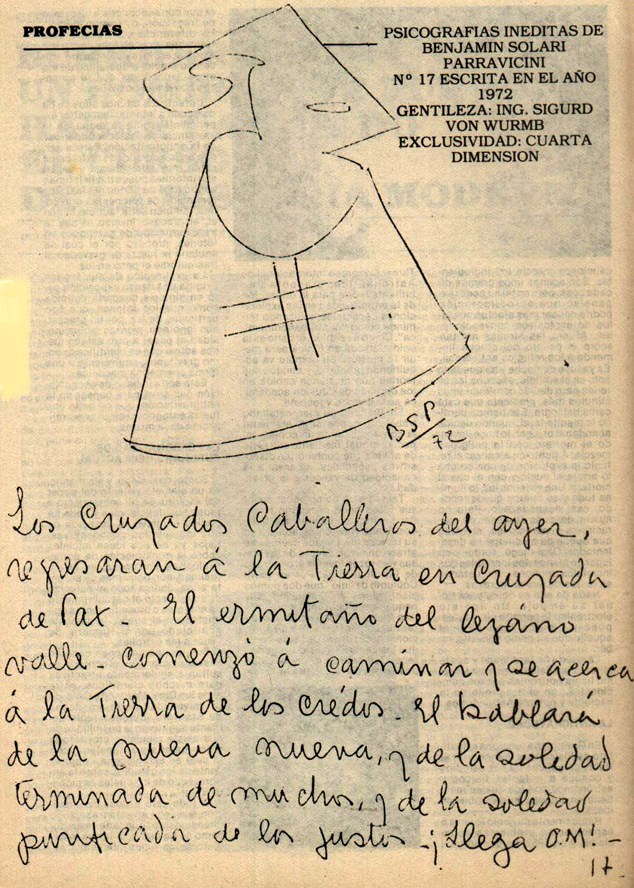 PROFECIAS
PSICOGRAFIAS INEDITAS DE
BENJAMIN SOLARI
PARRAVICINI
Nº 17 ESCRITA EN EL AÑO
1972
GENTILEZA: ING. SIGURD
VON WURMB
EXCLUSIVIDAD: CUARTA
DIMENSION
BSP
72
Los Cruzados Caballeros del ayer,
regresaran á la Tierra en Cruzada
de Pax - El ermitaño del lejáno
valle - comenzó á caminar y se acerca
á la Tierra de los crédos - El hablará
de la nueva nueva, y de la soledad
terminada de muchos, y de la soledad
purificada de los justos - ¡Llega O.M! -
17